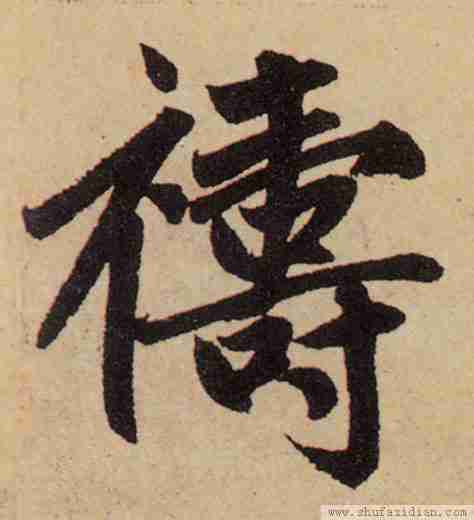 禱
www.shufazidian.com